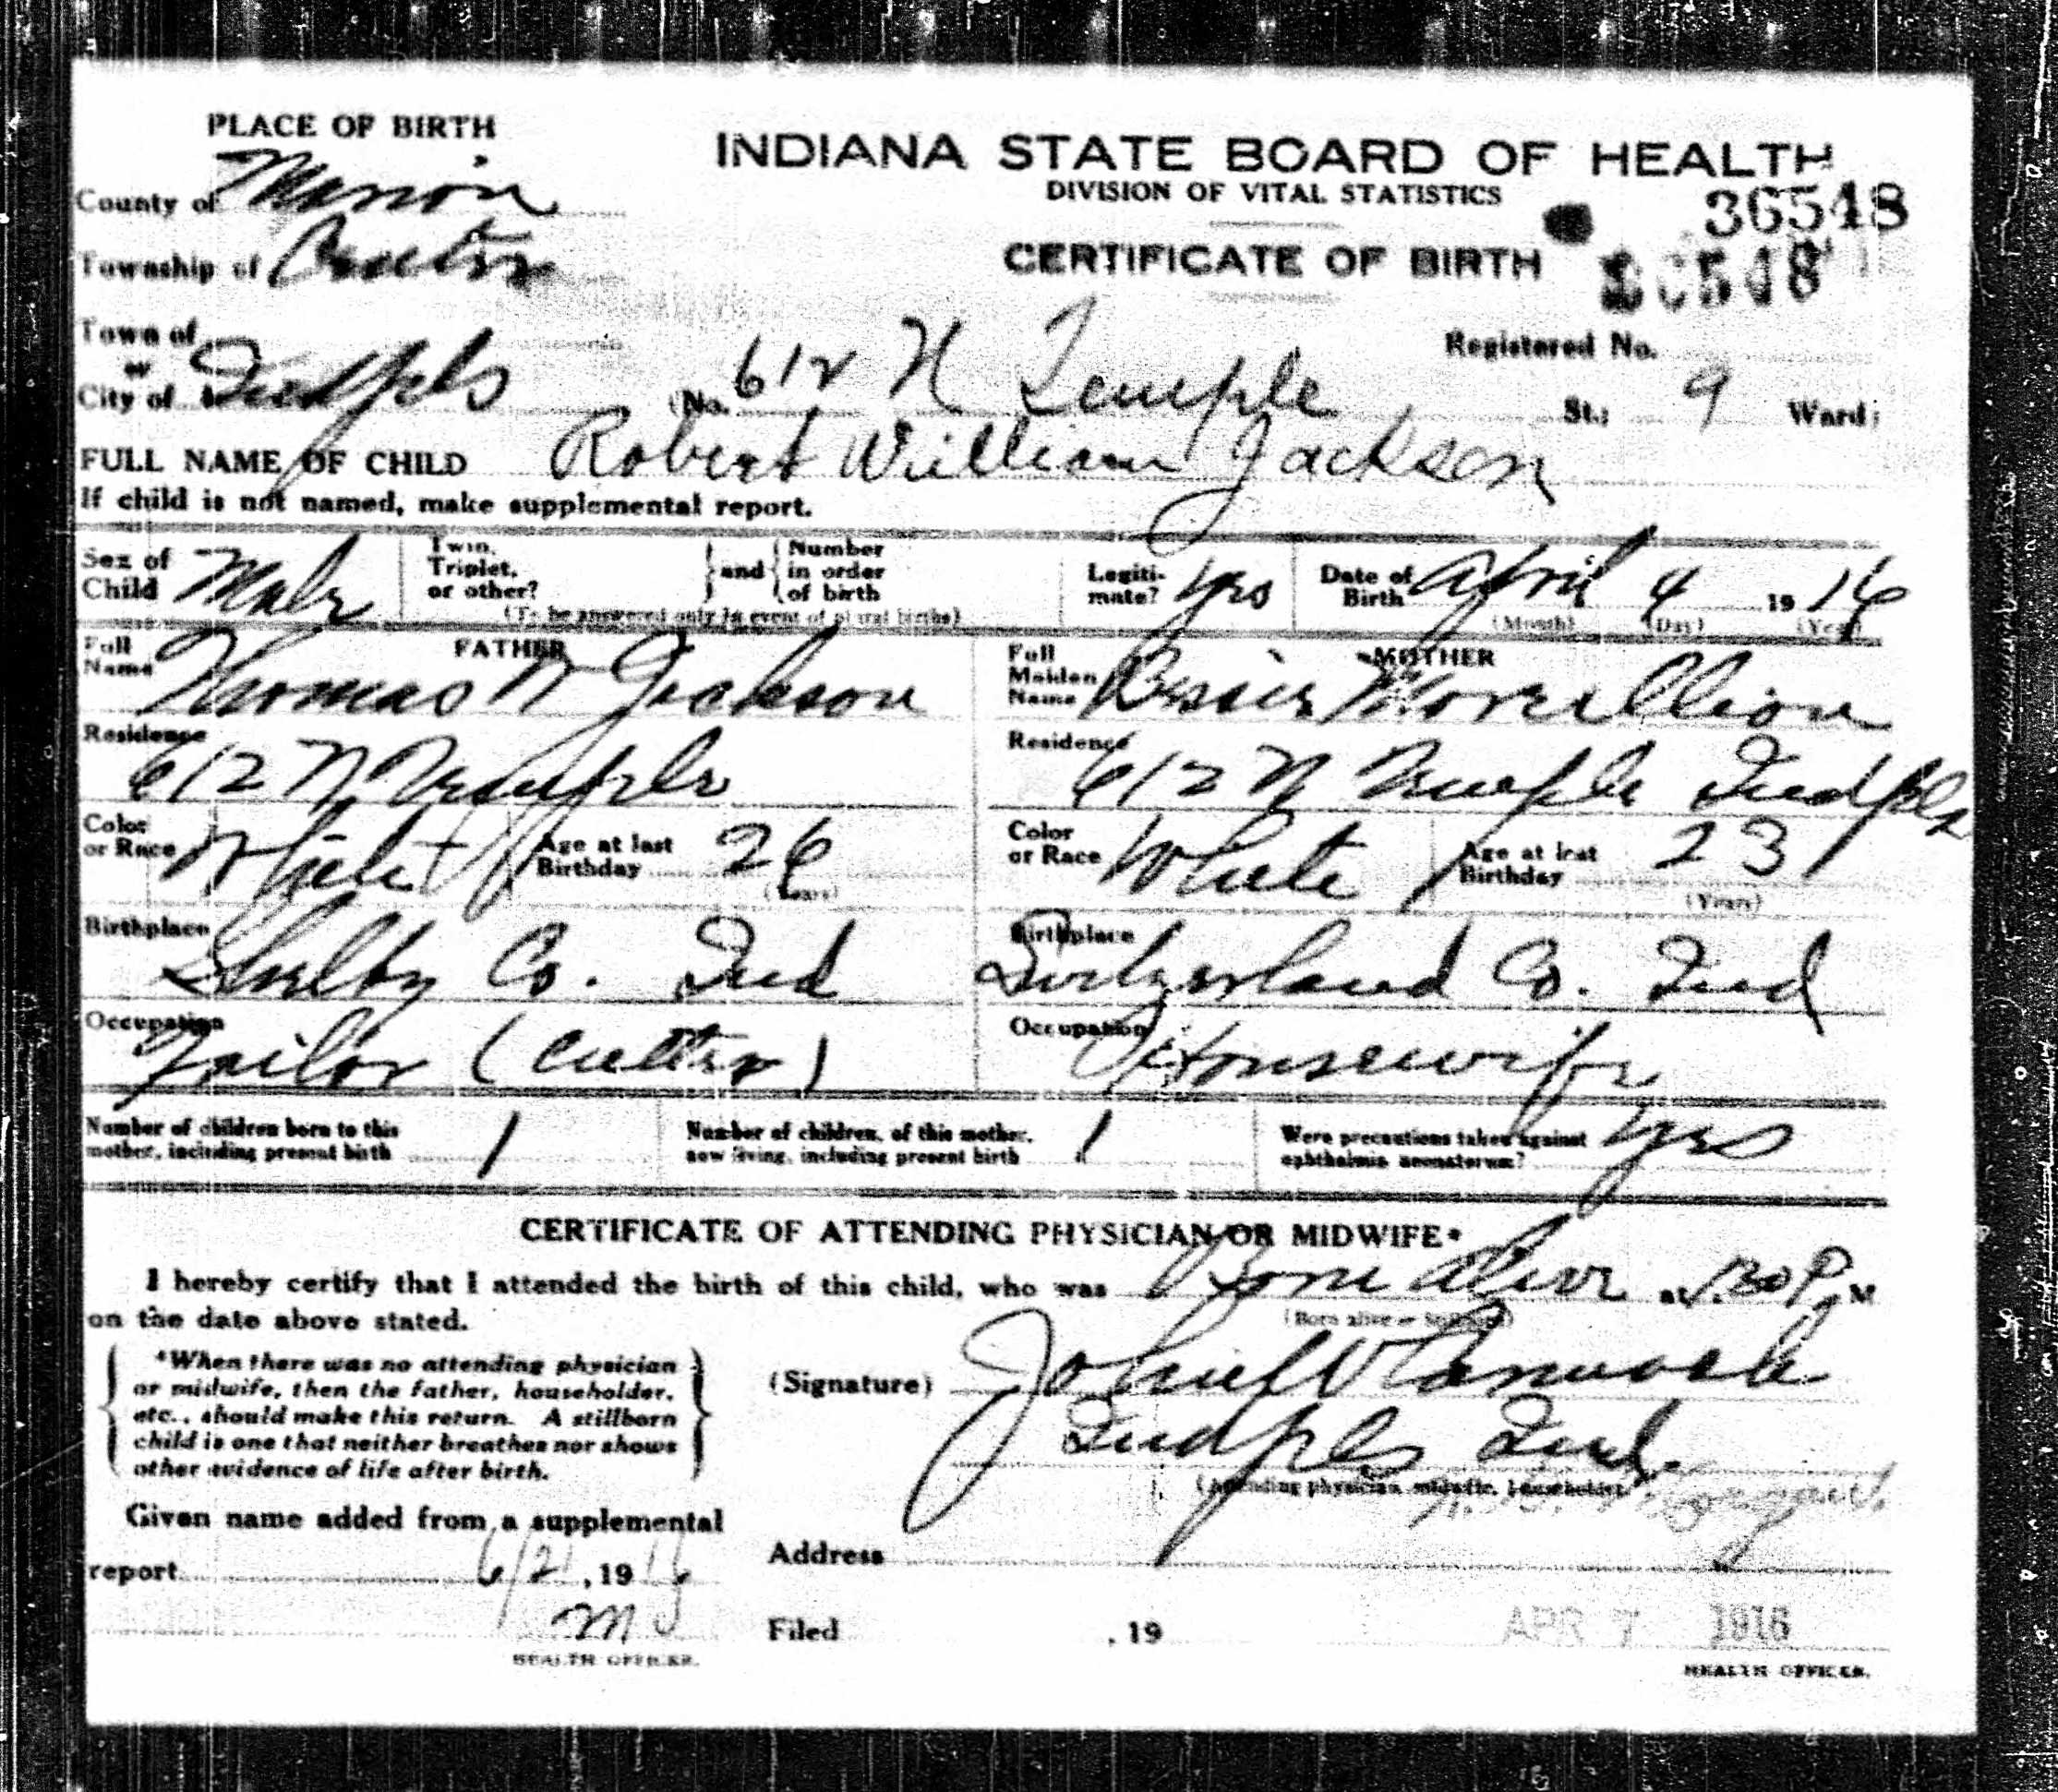 PLACE OF BIRTH
INDIANA STATE BOARD OF HEALTH
DIVISION OF VITAL STATISTICS
36548
County of Marion
Township of Center
CERTIFICATE OF BIRTH
36548
Town of
or
City of Indpls
(No. 612 N Temple
Registered No.
St.; 9 Ward;
FULL NAME OF CHILD Robert William Jackson
If child is not named, make supplemental report.
Sex of Child Male
Twin, Triplet, or other?
and
Number in order of birth
(To be answered only in event of plural births)
Legiti-mate? Yes
Date of Birth April 4 1916
(Month) (Day) (Year)
FATHER
Full Name Thomas W Jackson
MOTHER
Full Maiden Name Bessie
Residence
612 N Temple
Residence
612 N Temple Indpls
Color or Race White
Age at last Birthday 26
(Years)
Color or Race White
Age at last Birthday 23
(Years)
Birthplace
Shelby Co. Ind
Birthplace
Switzerland Co. Ind
Occupation
Tailor (Cutter)
Occupation
Housewife
Number of children born to this mother, including present birth 1
Number of children, of this mother, now living, including present birth 1
Were precautions taken against ophthalmia neonatorum? Yes
CERTIFICATE OF ATTENDING PHYSICIAN OR MIDWIFE*
I hereby certify that I attended the birth of this child, who was Born alive at 1:30 P. M
on the date above stated.
(Born alive or Stillborn)
*When there was no attending physician
or midwife, then the father, householder,
etc., should make this return. A stillborn
child is one that neither breathes nor shows
other evidence of life after birth.
(Signature)
Indpls Ind.
(Attending physician, midwife, householder
Given name added from a supplemental
report 6/21, 1916
Address
Filed , 19 APR 7 1916
HEALTH OFFICER.
HEALTH OFFICER.